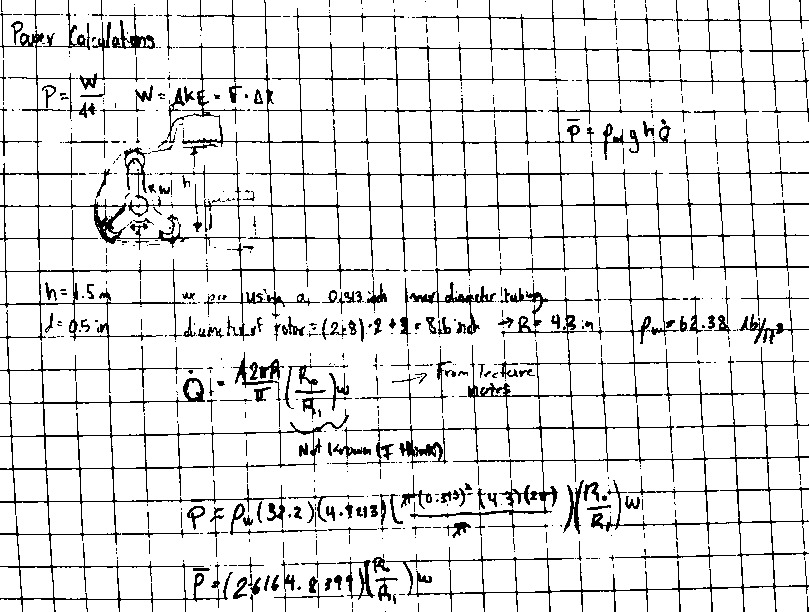 Power Calculations
P = W/Δt    W = ΔKE = F · Δx
P̄ = ρ_w g h Q̇
h
w
h = 1.5 m    we are using a 0.313 inch inner diameter tubing
d = 0.5 in    diameter of rotor = (2.8)·2 + 3 = 8.6 inch → R = 4.3 in    ρ_w = 62.38 lb/ft³
Q̇ = A2πR/π (R₀/R₁) w → From lecture notes
Not known (I think)
P̄ = ρ_w (32.2)(4.9213)(π(0.313)²(4.3)(2π)/π)(R₀/R₁) w
P̄ = (26164.8399)(R₀/R₁) w